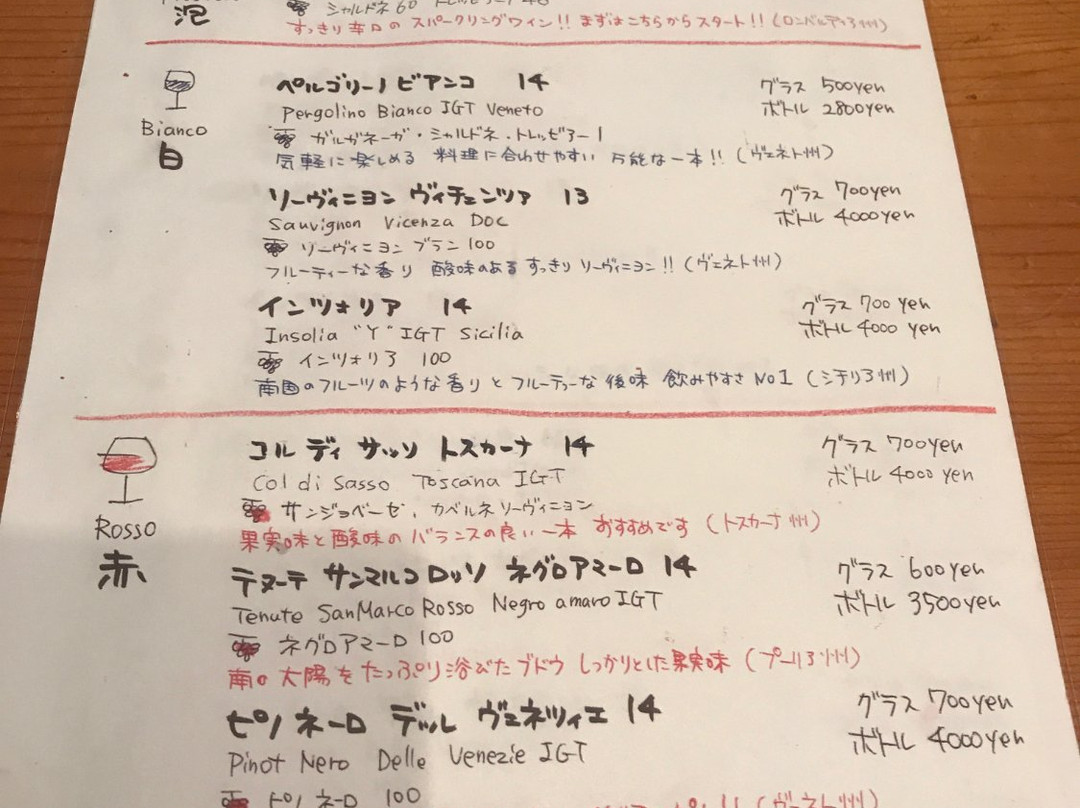 泡
シャルドネ 60
すっきり辛口の スパークリングワイン!! まずはこちらからスタート!! (ロンバルディア州)
Bianco
白
ペルゴリーノ ビアンコ 14 グラス 500yen
Pergolino Bianco IGT Veneto ボトル 2800yen
ガルガネーガ・シャルドネ・トレッビアーノ
気軽に楽しめる 料理に合わせやすい 万能な一本!! (ヴェネト州)
ソーヴィニヨン ヴィチェンツァ 13 グラス 700yen
Sauvignon Vicenza DOC ボトル 4000yen
ソーヴィニヨン ブラン 100
フルーティーな香り 酸味のある すっきり ソーヴィニヨン!! (ヴェネト州)
インツォリア 14 グラス 700 yen
Insolia "Y" IGT Sicilia ボトル 4000 yen
インツォリア 100
南国のフルーツのような香りと フルーティーな 後味 飲みやすさ No1 (シチリア州)
Rosso
赤
コル ディ サッソ トスカーナ 14 グラス 700yen
Col di Sasso Toscana IGT ボトル 4000 yen
サンジョベーゼ、カベルネ ソーヴィニヨン
果実味と酸味の バランスの良い一本 おすすめです (トスカーナ州)
テヌーテ サンマルコ ロッソ ネグロアマーロ 14 グラス 600yen
Tenute SanMarco Rosso Negro amaro IGT ボトル 3500yen
ネグロアマーロ 100
南の太陽をたっぷり浴びたブドウ しっかりとした果実味 (プーリア州)
ピノ ネーロ デッレ ヴェネツィエ 14 グラス 700yen
Pinot Nero Delle Venezie IGT ボトル 4000yen
ピノ ネーロ 100
(ヴェネト州)